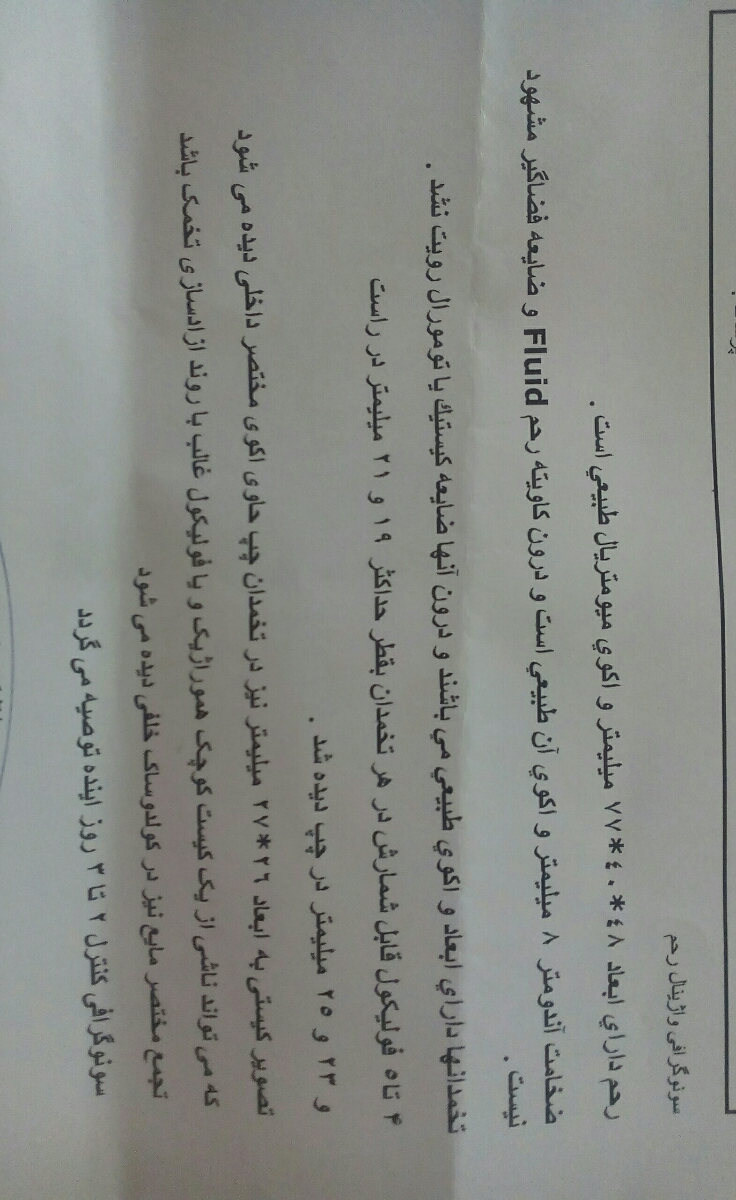 سونوگرافی واژینال رحم
رحم داراي ابعاد ٤٨*٤٠*٧٧ میلیمتر و اكوي میومتریال طبیعي است .
ضخامت آندومتر ٨ میلیمتر و اكوي آن طبیعي است و درون كاویته رحم Fluid و ضایعه فضاگیر مشهود
نیست .
تخمدانها داراي ابعاد و اكوي طبیعي مي باشند و درون آنها ضایعه كیستیك یا تومورال رویت نشد .
۴ تا ۵ فولیکول قابل شمارش در هر تخمدان بقطر حداکثر ۱۹ و ۲۱ میلیمتر در راست
و ۲۳ و ۲۵ میلیمتر در چپ دیده شد .
تصویر کیستی به ابعاد ۲۶*۲۷ میلیمتر نیز در تخمدان چپ حاوی اکوی مختصر داخلی دیده می شود
که می تواند ناشی از یک کیست کوچک هموراژیک و یا فولیکول غالب با روند ازادسازی تخمک باشد
تجمع مختصر مایع نیز در کولدوساک خلفی دیده می شود
سونوگرافی کنترل ۲ تا ۳ روز اینده توصیه می گردد